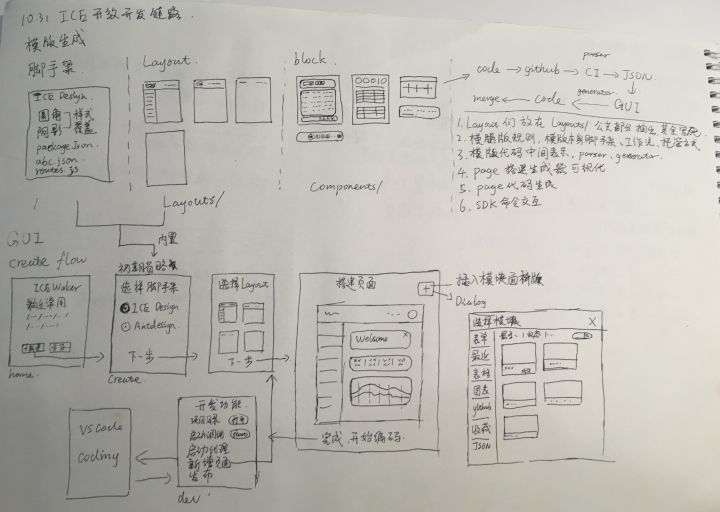 10.31 ICE开放开发链路.
模版生成
脚手架
ICE Design.
圆角 样式
阴影 覆盖
package.json
abc.json
routes.js
/
Layout.
Layouts/
block.
Components/
parser
code → github → CI → JSON.
generator.
merge ← Code ← GUI
1. Layout们放在Layouts/ 公共部分
2. 模版规则, 模版本身脚手架、工作流、
3. 模版代码中间表示, parser, generator.
4. page 搭建生成器可视化
5. page 代码生成
6. SDK 命令交互
内置
GUI
Create flow
ICE Worker
最近常用
home.
初期省略
选择脚手架
ICE Design
Antdesign.
下一步
Create.
选择Layout
下一步
搭建页面
Welcome ×
+
插入模块
Dialog
选择模块 X
表单
最近
表格
图表
github
收藏
JSON
完成 开始编码.
开发功能
启动调试
启动代理
新增页面
发布
dev.
VS code
Coding